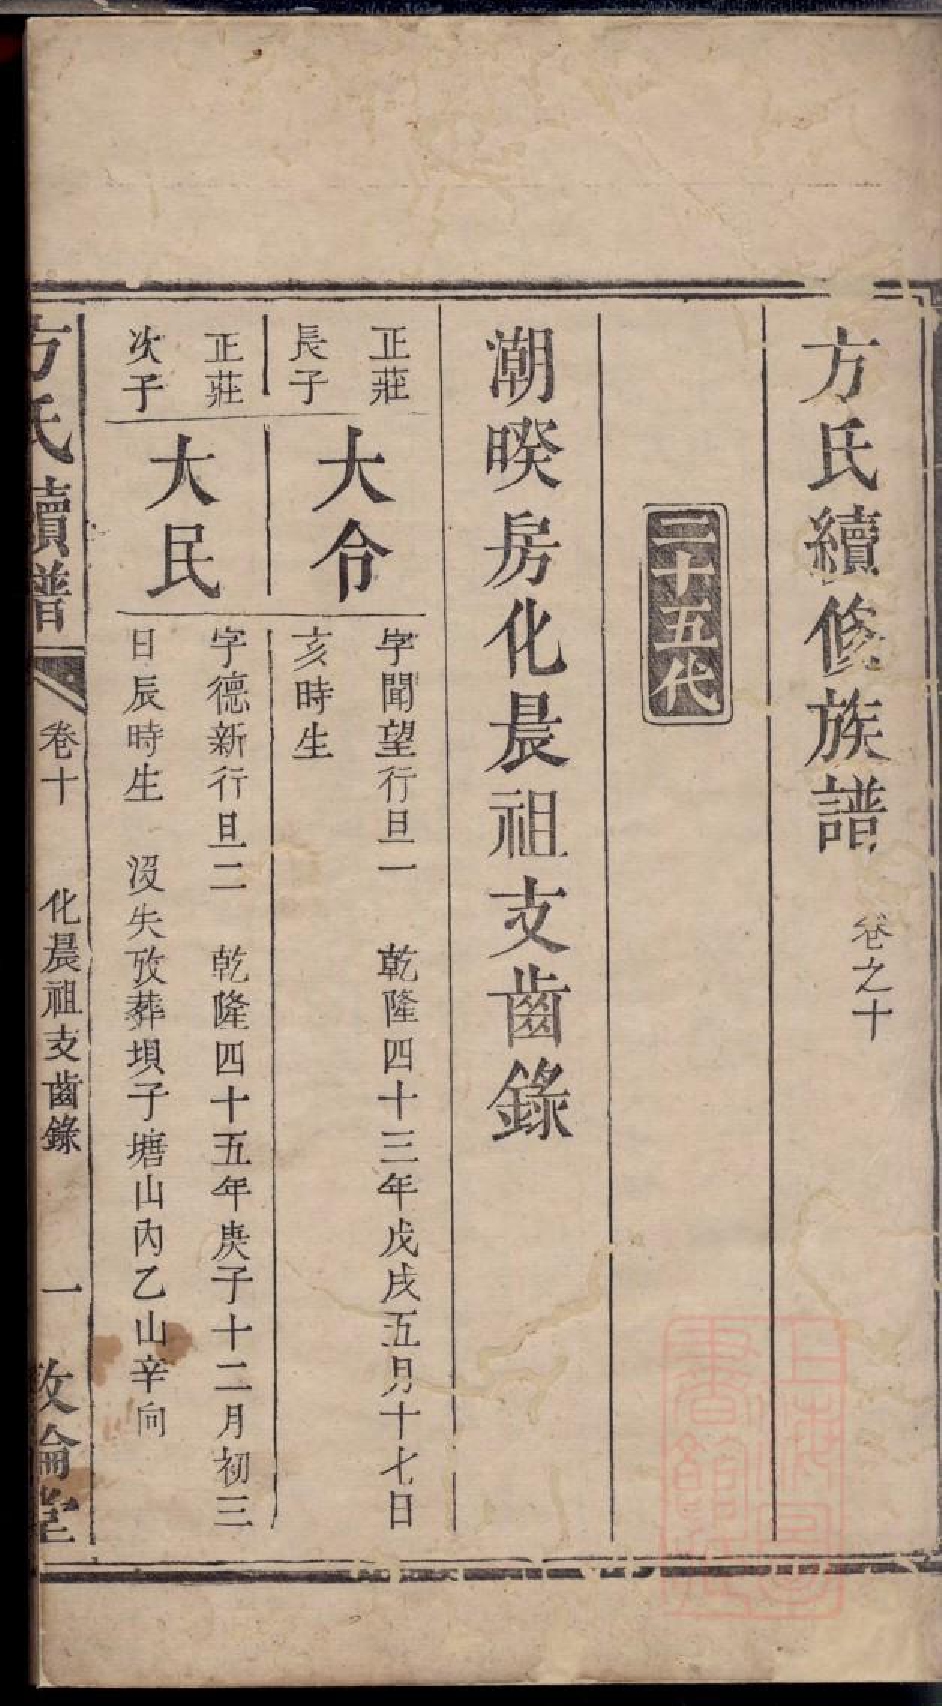 方氏續修族譜 卷之十
二十五代
潮暌房化晨祖支齒錄
正莊
長子
大令
字聞望行旦一 乾隆四十三年戊戌五月十七日
亥時生
正莊
次子
大民
字德新行旦二 乾隆四十五年庚子十二月初三
日辰時生 沒失攷葬垻子塘山內乙山辛向
方氏續譜 卷十 化晨祖支齒錄 一 敦倫堂
上海圖書館藏